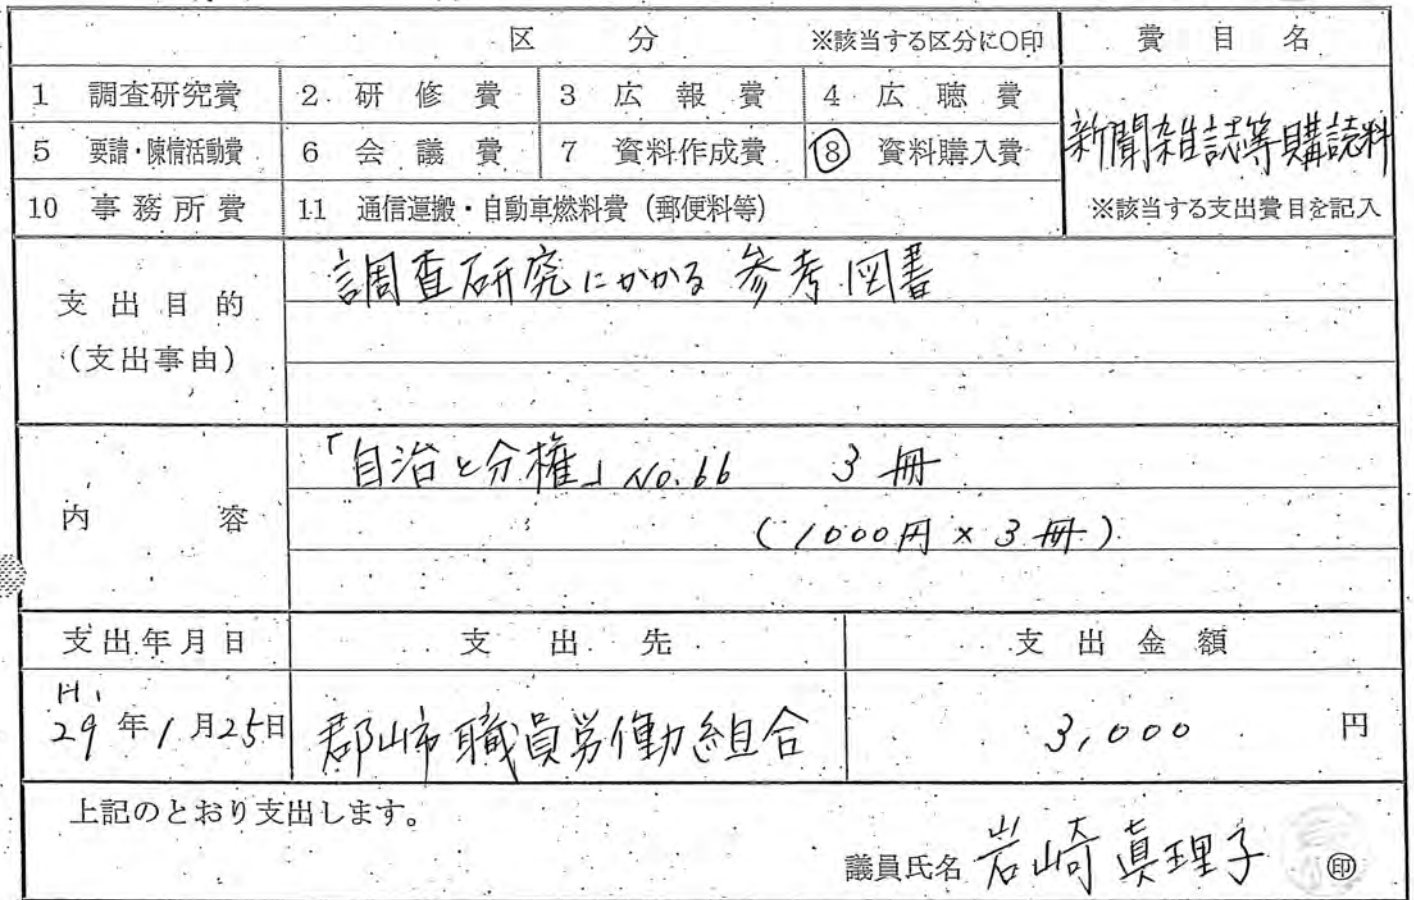 区 分 ※該当する区分に○印 費 目 名
1 調査研究費 2 研 修 費 3 広 報 費 4 広 聴 費
新聞雑誌等購読料
5 要請・陳情活動費 6 会 議 費 7 資料作成費 ⑧ 資料購入費
10 事務所費 11 通信運搬・自動車燃料費（郵便料等） ※該当する支出費目を記入
支出目的
（支出事由）
調査研究にかかる参考図書
内 容
「自治と分権」No.66 3冊
（1000円×3冊）
支出年月日 支 出 先 支 出 金 額
H.
29年1月25日 郡山市職員労働組合 3,000 円
上記のとおり支出します。
議員氏名 岩崎真理子 ㊞